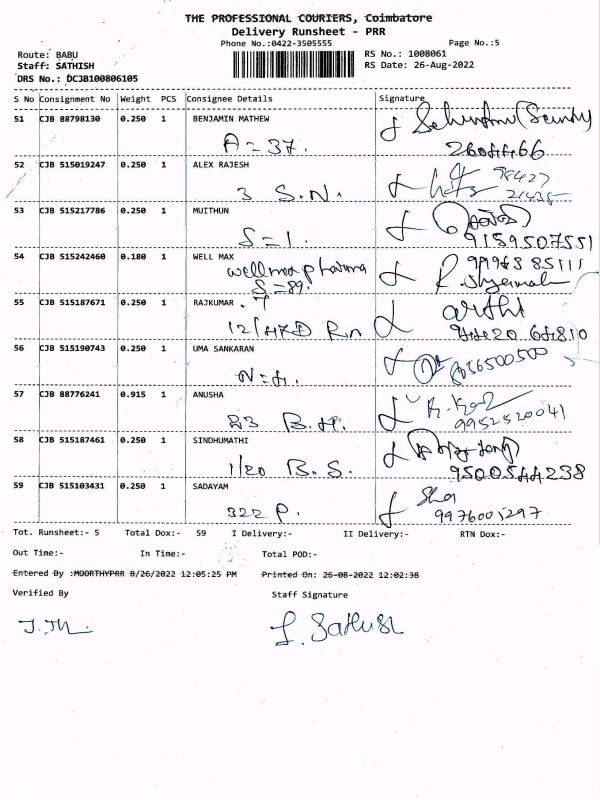 THE PROFESSIONAL COURIERS, Coimbatore
Delivery Runsheet - PRR
Phone No.:0422-3505555
Page No.:5
Route: BABU
RS No.: 1008061
Staff: SATHISH
RS Date: 26-Aug-2022
DRS No.: DCJB100806105
S No Consignment No Weight PCS Consignee Details Signature
51 CJB 88798130 0.250 1 BENJAMIN MATHEW
A = 37.
52 CJB 515019247 0.250 1 ALEX RAJESH
3 S.N.
53 CJB 515217786 0.250 1 MUITHUN
S = 1.
9159507551
54 CJB 515242460 0.180 1 WELL MAX
wellmax pharma
S = 89.
55 CJB 515187671 0.250 1 RAJKUMAR . T
arthi
94420 64810
56 CJB 515190743 0.250 1 UMA SANKARAN
57 CJB 88776241 0.915 1 ANUSHA
23 B.H.
9952520041
58 CJB 515187461 0.250 1 SINDHUMATHI
1/20 B.S.
9500544238
59 CJB 515103431 0.250 1 SADAYAM
322 P.
9976001297
Tot. Runsheet:- 5 Total Dox:- 59 I Delivery:- II Delivery:- RTN Dox:-
Out Time:- In Time:- Total POD:-
Entered By :MOORTHYPRR 8/26/2022 12:05:25 PM Printed On: 26-08-2022 12:02:38
Verified By Staff Signature